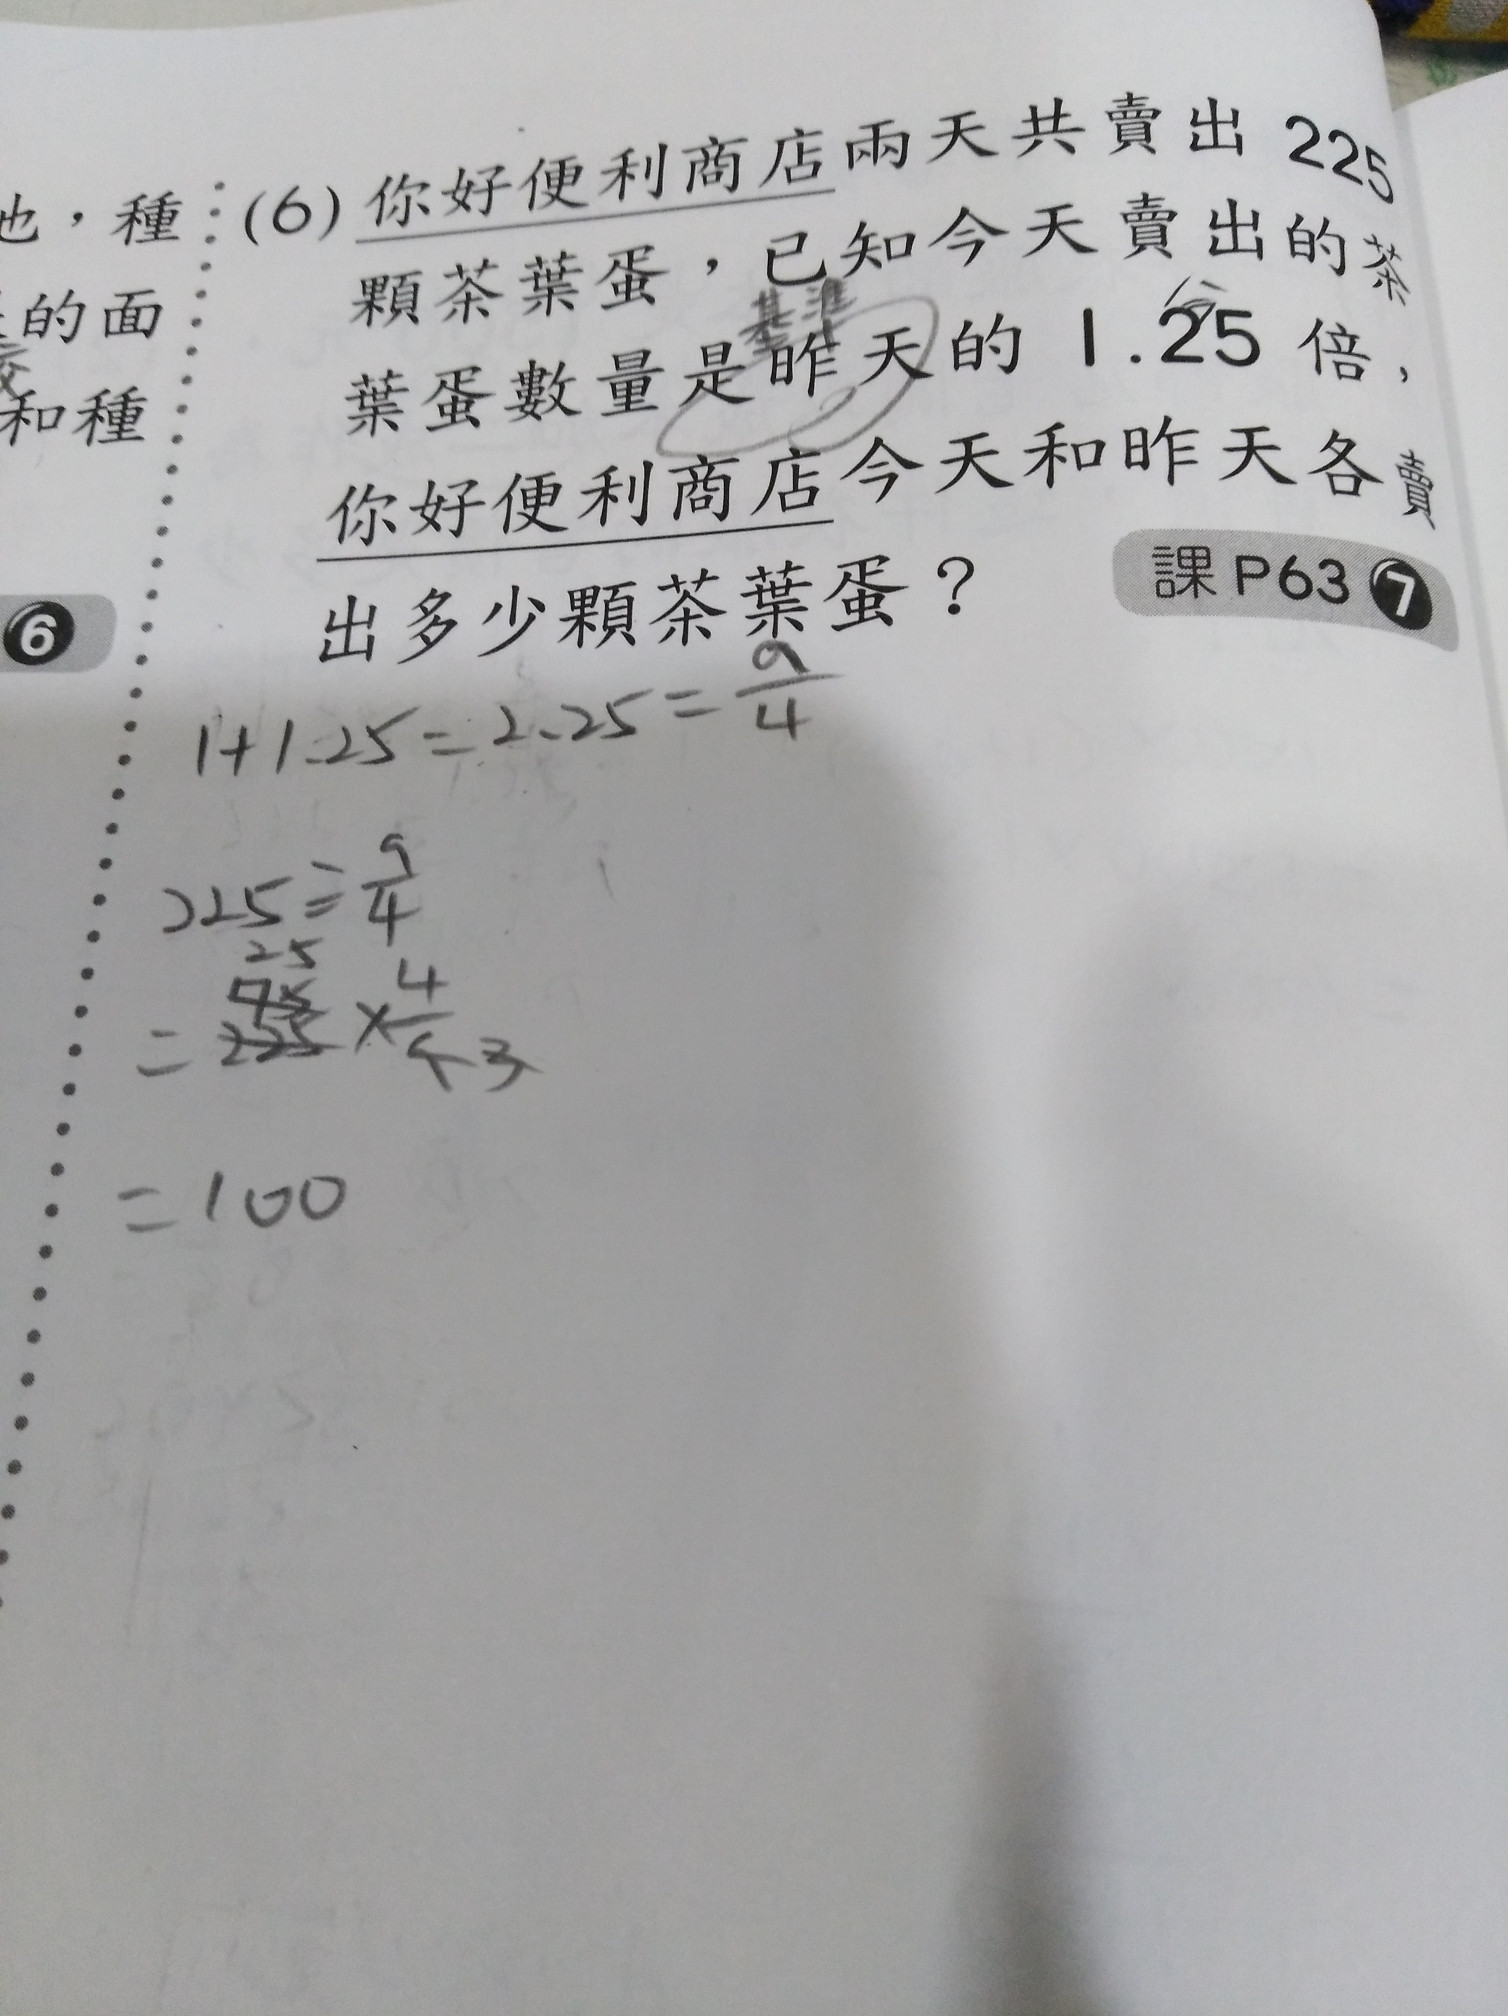 也，種
的面
和種
6
(6) 你好便利商店兩天共賣出 225
顆茶葉蛋，已知今天賣出的茶
基準
葉蛋數量是昨天的 1.25 倍，
你好便利商店今天和昨天各賣
出多少顆茶葉蛋？
課 P63 7
1+1.25=2.25=9/4
225÷9/4
25
75
=225×4/9 3
=100